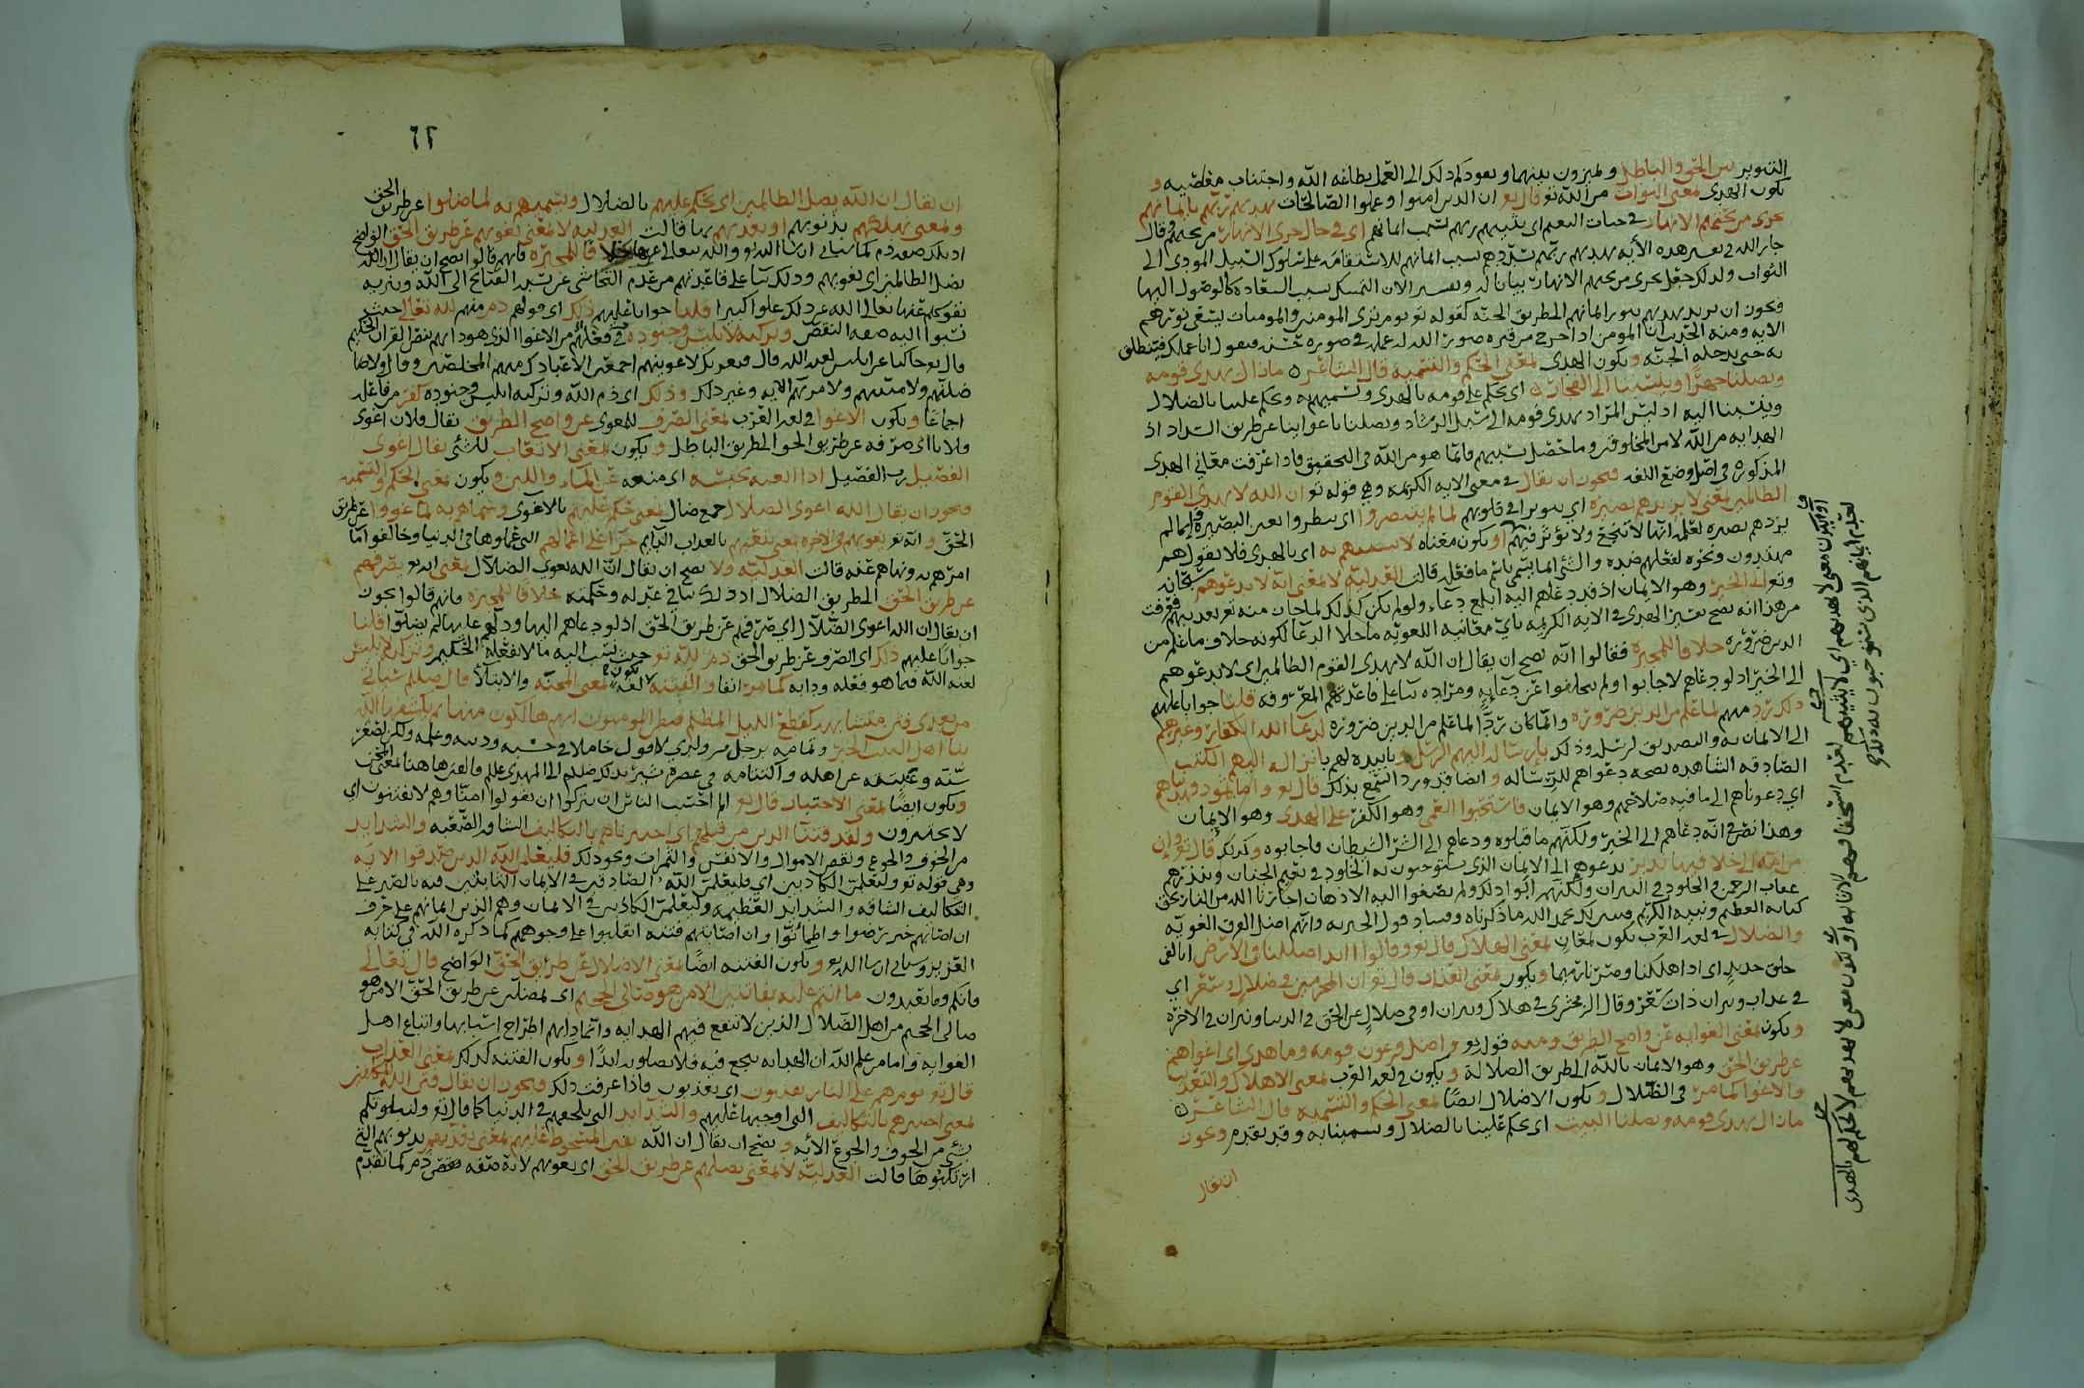 التنوير بين الحق والباطل ولميزون بينهما ويعودكم ذلك الى العمل بطاعة الله واجتناب معاصيه و
يكون الهدى بمعنى الثواب من الله تع قال تع ان الذين امنوا وعملوا الصالحات يهديهم ربهم بايمانهم
تجري من تحتهم الانهار في جنات النعيم اي يثيبهم ربهم بسبب ايمانهم اي في حال جري الانهار من تحتهم وقال
جار الله في تفسير هذه الآيه يهديهم ربهم يسددهم بسبب ايمانهم للاستقامه على سلوك السبيل المودي الى
الثواب ولذلك جعل تجري من تحتهم الانهار بيانا له وتفسيرا لان التمسك بسبب السعاده كالوصول اليها
ويجوز ان يريد يهديهم بنور ايمانهم الى طريق الجنه كقوله تع يوم ترى المومنين والمومنات يسعى نورهم
الايه ومنه الحديث ان المومن اذا خرج من قبره صور الله له عمله في صورة حسنه فيقول انا عملك فينطلق
به حتى يدخله الجنه ويكون الهدى بمعنى الحكم والتسميه قال الشاعر ما زال يهدي قومه
ويضلنا جهرا وينسبنا الى الفجار اي يحكم على قومه بالهدى ويسميهم به ويحكم علينا بالضلال
وينسبنا اليه اذ ليس المراد يهدي قومه الى سبل الرشاد ويضلنا باغوائنا عن طريق السداد اذ
الهدايه من الله لا من المخلوقين وما حصل بسببهم فانما هو من الله في التحقيق فاذا عرفت معاني الهدى
المذكوره في اصل وضع اللغه فيجوز ان يقال في معنى الايه الكريمه وهي قوله تع ان الله لا يهدي القوم
الظالمين بمعنى لا يزيدهم بصيرة اي تنويرا في قلوبهم لما لم يتبصروا اي ينظروا بعين البصيره وانما لم
يزدهم بصيره لعلمه انها لا تنجع ولا تؤثر فيهم او يكون معناه لا يسميهم به اي بالهدى فلا يقول هم
مهتدون ونحوه لفعلهم ضده والشئ انما يسمى باسم ما فعل قالت العدليه لا بمعنى انه لا يدعوهم سبحانه
وتع الى الخير وهو الايمان اذ قد دعاهم اليه ابلغ دعاء ولو لم يكن كذلك لما جاز منه تع تعذيبهم فعرفت
من هذا انه يصح تفسير الهدى في الايه الكريمه باي معانيه اللغويه ما خلا الدعا لكونه خلاف ما علم من
الدين ضروره خلافا للمجبره فقالوا انه يصح ان يقال ان الله لا يهدي القوم الظالمين اي لا يدعوهم
الى الخير اذ لو دعاهم لاجابوا ولم يتخلفوا عن دعايه ومراده بنا على قاعدتهم المعروفه قلنا جوابا عليهم
ذلك رد منهم لما علم من الدين ضروره وانما كان ردا لما علم من الدين ضروره لدعاء الله الكفار وغيرهم
الى الايمان به والتصديق لرسله وذلك بارساله اليهم الرسل وتاييده لهم بانزاله اليهم الكتب
الصادقه الشاهده بصحه دعواهم للرساله وايضا فقد ورد السمع بذلك قال تع واما ثمود فهديناهم
اي دعوناهم الى ما فيه صلاحهم وهو الايمان فاستحبوا العمى وهو الكفر على الهدى وهو الايمان
وهذا نص في انه دعاهم الى الخير ولكنهم ما قبلوه ودعاهم الى الشر الشيطان فاجابوه وكذلك قال تع وان
من امة الا خلا فيها نذير يدعوهم الى الايمان الذي يستوجبون به الخلود في نعيم الجنان وينذرهم
عقاب الرحمن والخلود في النيران ولكنهم ابوا ذلك ولم يصغوا اليه الاذهان اجارنا الله من النار بحق
كتابه العظيم ونبيه الكريم فبين لك بحمد الله ما ذكرناه وفساد قول المجبره وانهم اضل الفرق الغويه
والضلال في لغة العرب يكون لمعان بمعنى الهلاك قال تع وقالوا ائذا ضللنا في الارض ائنا لفي
خلق جديد اي اذا هلكنا وصرنا رميما ويكون بمعنى العذاب قال تع ان المجرمين في ضلال وسعر اي
في عذاب ونيران ذات تسعر وقال الزمخشري في هلاك ونيران او في ضلال عن الحق في الدنيا ونيران في الاخره
ويكون بمعنى الغوايه عن واضح الطريق ومنه قوله تع واضل فرعون قومه وما هدى اي اغواهم
عن طريق الحق وهو الايمان بالله الى طريق الضلالة ويكون في لغة العرب بمعنى الاهلاك والتعذيب
والاغوا كما مر في الضلال ويكون الاضلال ايضا بمعنى الحكم والتسميه قال الشاعر
ما زال يهدي قومه ويضلنا البيت اي يحكم علينا بالضلال ويسمينا به وقد تقدم ويجوز
ان يقال
او يكون معنى لا يهديهم اي لا يثيبهم لعدم استحقاقهم الاثابه او يكون معنى لا يهديهم لا يحكم لهم بالهدى
لعدم ايمانهم الذي يستوجبون به ذلك
٦٢
ان يقال ان الله يضل الظالمين اي يحكم عليهم بالضلال ويسميهم به لما ضلوا عن طريق الحق
وبمعنى يهلكهم بذنوبهم او يعذبهم بها قالت العدليه لا بمعنى يغويهم عن طريق الحق الواضح
اذ ذلك صفه ذم كما سياتي ان شا الله تع والله يتعالى عنها خلافا للمجبره فانهم قالوا يصح ان يقال ان الله
يضل الظالمين اي يغويهم وذلك بنا على قاعدتهم من عدم التحاشي عن نسبه القبائح الى الله وتنزيه
نفوسهم عنها تعالى الله عن ذلك علوا كبيرا قلنا جوابا عليهم ذلك اي قولهم ذم منهم لله تعالى حيث
نسبوا اليه صفه النقص وتزكية لابليس وجنوده في فعلهم من الاغوا الذي هو دابهم بنص القران الحكيم
قال تع حاكيا عن ابليس لعنه الله قال فبعزتك لاغوينهم اجمعين الا عبادك منهم المخلصين وقال ولاضلنهم
ولامنينهم ولامرنهم الايه وغير ذلك وذلك اي ذم الله وتزكيه ابليس وجنوده كفر من فاعله
اجماعا ويكون الاغوا في لغة العرب بمعنى الصرف للمغوى عن واضح الطريق يقال فلان اغوى
فلانا اي صرفه عن طريق الحق الى طريق الباطل ويكون بمعنى الاتعاب للشئ يقال اغوى
الفصيل رب الفصيل اذا اتعبه بحبسه اي منعه عن الماء واللبن ويكون بمعنى الحكم والتسميه
فيجوز ان يقال الله اغوى الضلال جمع ضال بمعنى حكم عليهم بالاغوى وسماهم به لما غووا عن طريق
الحق وانه تع يغويهم في الاخره بمعنى يتعبهم بالعذاب الدايم جزا على اعمالهم التي عملوها في الدنيا وخالفوا ما
امرهم به ونهاهم عنه قالت العدليه ولا يصح ان يقال ان الله يغوي الضلال بمعنى انه تع يصرفهم
عن طريق الحق الى طريق الضلال اذ ذلك ينافي عدله وحكمته خلافا للمجبره فانهم قالوا يجوز
ان يقال ان الله اغوى الضلال اي صرفهم عن طريق الحق اذ لو دعاهم اليها ودلهم عليها لم يضلوا قلنا
جوابا عليهم ذلك اي الصرف عن طريق الحق ذم لله تع حيث نسب اليه ما لا يفعله الحكيم وتزكيه لابليس
لعنه الله فيما هو فعله ودابه كما مر انفا والفتنه لغة تكون بمعنى المحنه والابتلا قال صلعم ستاتي
من بعدي فتن متشابهة كقطع الليل المظلم فيظن المومنون انهم هالكون منها ثم يكشفها الله
بنا اهل البيت الخبر وتمامه برجل من ولدي لا اقول خاملا في حسبه ودينه وعلمه ولكن لصغر
سنه وغيبته عن اهله واكتتامه في عصره يشير بذلك صلعم الى المهدي علم فالفتن هاهنا بمعنى المحن
ويكون ايضا بمعنى الاختبار قال تع الم احسب الناس ان يتركوا ان يقولوا امنا وهم لا يفتنون اي
لا يختبرون ولقد فتنا الذين من قبلهم اي اختبرناهم بالتكاليف الشاقه الصعبه والشدايد
من الخوف والجوع ونقص الاموال والانفس والثمرات ونحو ذلك فليعلمن الله الذين صدقوا الايه
وهي قوله تع وليعلمن الكاذبين اي فليعلمن الله الصادقين في الايمان الثابتين فيه بالصبر على
التكاليف الشاقه والشدايد العظيمه وليعلمن الكاذبين في الايمان وهم الذين ايمانهم على حرف
ان اصابهم خير رضوا واطمانوا وان اصابتهم فتنه انقلبوا على وجوههم كما ذكره الله في كتابه
العزيز وسياتي ان شا الله تع ويكون الفتنه ايضا بمعنى الاضلال عن طريق الحق الواضح قال تعالى
فانكم وما تعبدون ما انتم عليه بفاتنين الا من هو صالي الجحيم اي بمضلين عن طريق الحق الا من هو
صالي الجحيم من اهل الضلال الذين لا تنفع فيهم الهدايه وانما دابهم اطراح اسبابها واتباع اهل
الغوايه واما من علم الله ان الهدايه تنجع فيه فلا يضلونه ابدا ويكون الفتنه كذلك بمعنى العذاب
قال تع يوم هم على النار يفتنون اي يعذبون فاذا عرفت ذلك فيجوز ان يقال فتن الله المكلفين
بمعنى اختبرهم بالتكاليف التي اوجبها عليهم والشدايد التي يلجهم في الدنيا كما قال تع ولنبلونكم
بشئ من الخوف والجوع الايه ويصح ان يقال ان الله يفتن المسخوط عليهم بمعنى يعذبهم بذنوبهم التي
ارتكبوها قالت العدليه لا بمعنى يضلهم عن طريق الحق اي يغويهم لانه صفه نقص ذم كما تقدم